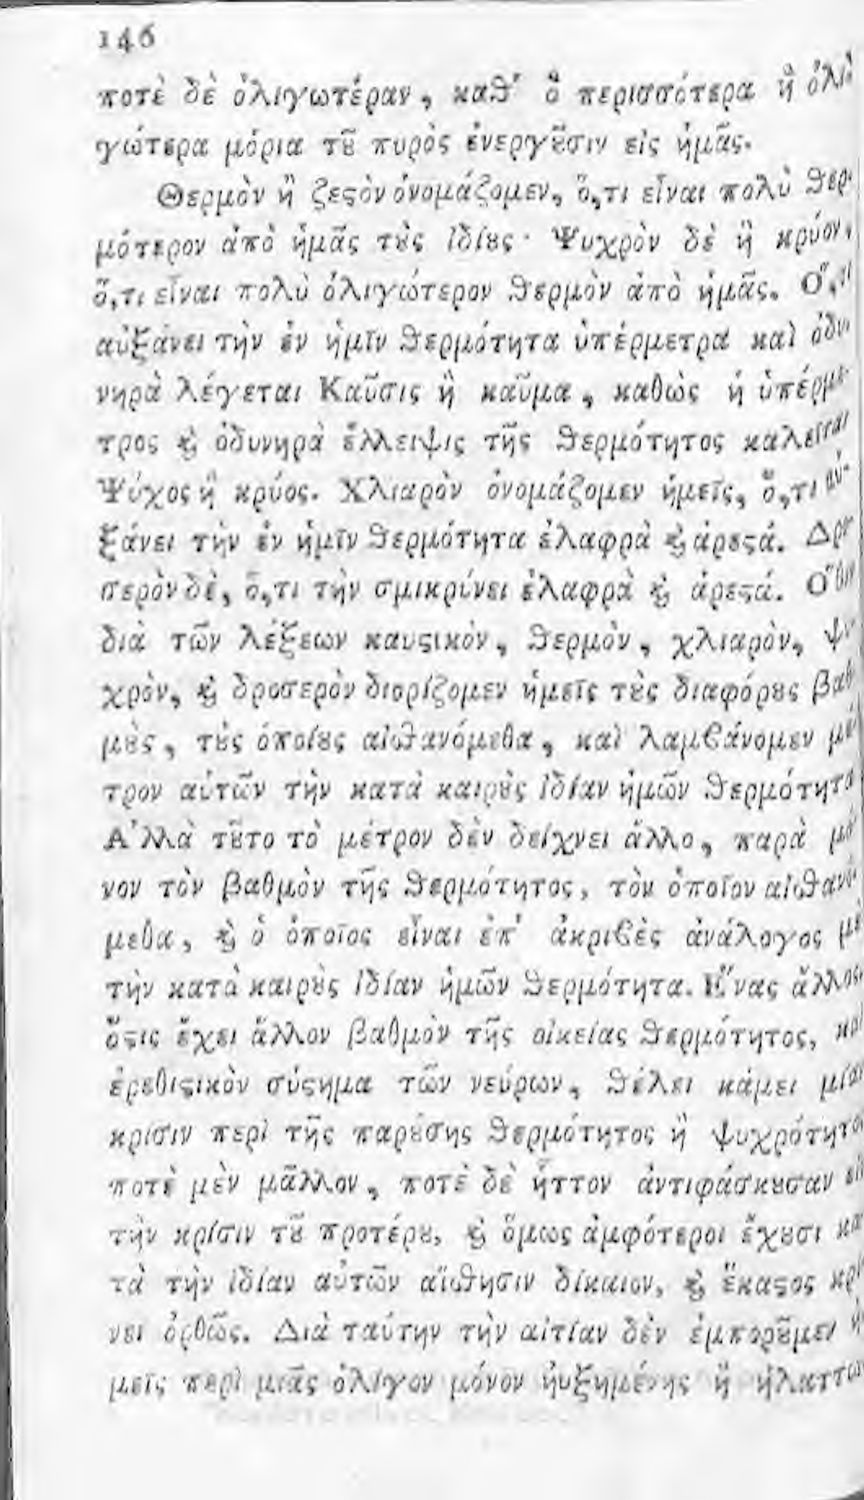 146
ποτὲ δὲ ὀλιγωτέραν, καθ' ὃ περισσότερα ἢ ὀλι-
γώτερα μόρια τȣ͂ πυρὸς ἐνεργȣ͂σιν εἰς ἡμᾶς.
Θερμὸν ἢ ζεϛὸν ὀνομάζομεν, ὅ,τι εἶναι πολὺ ϑερ-
μότερον ἀπὸ ἡμᾶς τȣ̀ς ἰδίȣς· Ψυχρὸν δὲ ἢ κρύον,
ὅ,τι εἶναι πολὺ ὀλιγώτερον ϑερμὸν ἀπὸ ἡμᾶς. Ὅ,τι
αὐξάνει τὴν ἐν ἡμῖν ϑερμότητα ὑπέρμετρα καὶ ὀδυ-
νηρὰ λέγεται Καῦσις ἢ καῦμα, καθὼς ἡ ὑπέρμε-
τρος ϗ ὀδυνηρὰ ἔλλειψις τῆς ϑερμότητος καλεῖται
Ψύχος ἢ κρύος. Χλιαρὸν ὀνομάζομεν ἡμεῖς, ὅ,τι αὐ-
ξάνει τὴν ἐν ἡμῖν ϑερμότητα ἐλαφρὰ ϗ ἀρεϛά. Δρο-
σερὸν δὲ, ὅ,τι τὴν σμικρύνει ἐλαφρὰ ϗ ἀρεϛά. Ὅθεν
διὰ τῶν λέξεων καυϛικὸν, ϑερμὸν, χλιαρὸν, ψυ-
χρὸν, ϗ δροσερὸν διορίζομεν ἡμεῖς τȣ̀ς διαφόρȣς βαθ-
μȣ̀ς, τȣ̀ς ὁποίȣς αἰϑανόμεθα, καὶ λαμϐάνομεν μέ-
τρον αὐτῶν τὴν κατὰ καιρȣ̀ς ἰδίαν ἡμῶν ϑερμότητα
Ἀλλὰ τȣ͂το τὸ μέτρον δὲν δείχνει ἄλλο, παρὰ μό-
νον τὸν βαθμὸν τῆς ϑερμότητος, τὸν ὁποῖον αἰσϑανό-
μεθα, ϗ ὁ ὁποῖος εἶναι ἐπ' ἀκριϐὲς ἀνάλογος με
τὴν κατὰ καιρȣ̀ς ἰδίαν ἡμῶν ϑερμότητα. Ἕνας ἄλλος
ὅϛις ἔχει ἄλλον βαθμὸν τῆς οἰκείας ϑερμότητος, καὶ
ἐρεθιϛικὸν σύϛημα τῶν νεύρων, ϑέλει κάμει μίαν
κρίσιν περὶ τῆς παρȣ́σης ϑερμότητος ἢ ψυχρότητος
ποτὲ μὲν μᾶλλον, ποτὲ δὲ ἧττον ἀντιφάσκȣσαν εἰς
τὴν κρίσιν τȣ͂ προτέρȣ, ϗ ὅμως ἀμφότεροι ἔχȣσι κα-
τὰ τὴν ἰδίαν αὐτῶν αἴσϑησιν δίκαιον, ϗ ἕκαϛος κρί-
νει ὀρθῶς. Διὰ ταύτην τὴν αἰτίαν δὲν ἐμπορȣ͂μεν ἡ-
μεῖς περὶ μιᾶς ὀλίγον μόνον ηὐξημένης ἢ ἠλαττω